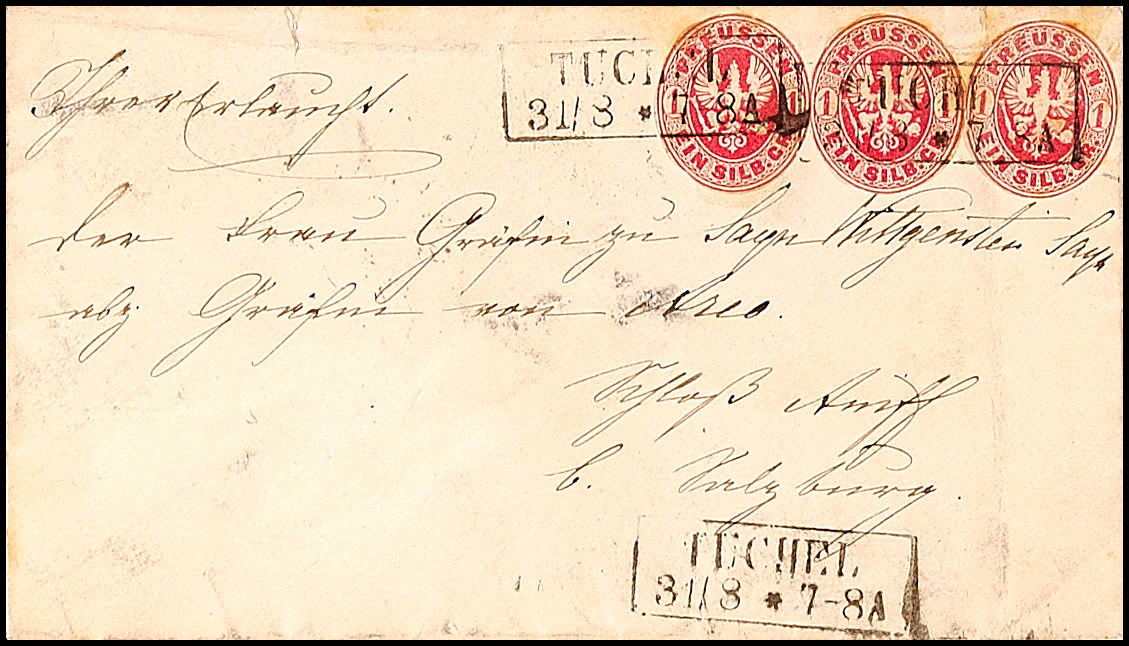 PREUSSEN 1 1 EIN SILB. GR.
PREUSSEN 1 EIN SILB. GR.
PREUSSEN 1 1 EIN SILB. GR.
TUCHEL
31/8 * 7-8A
TUCHEL
31/8 * 7-8A
Ihrer Erlaucht.
der Frau Gräfin zu Sayn Wittgenstein Sayn
Gräfin von Arco.
Schloß Anif
b. Salzburg.
TUCHEL
31/8 * 7-8A